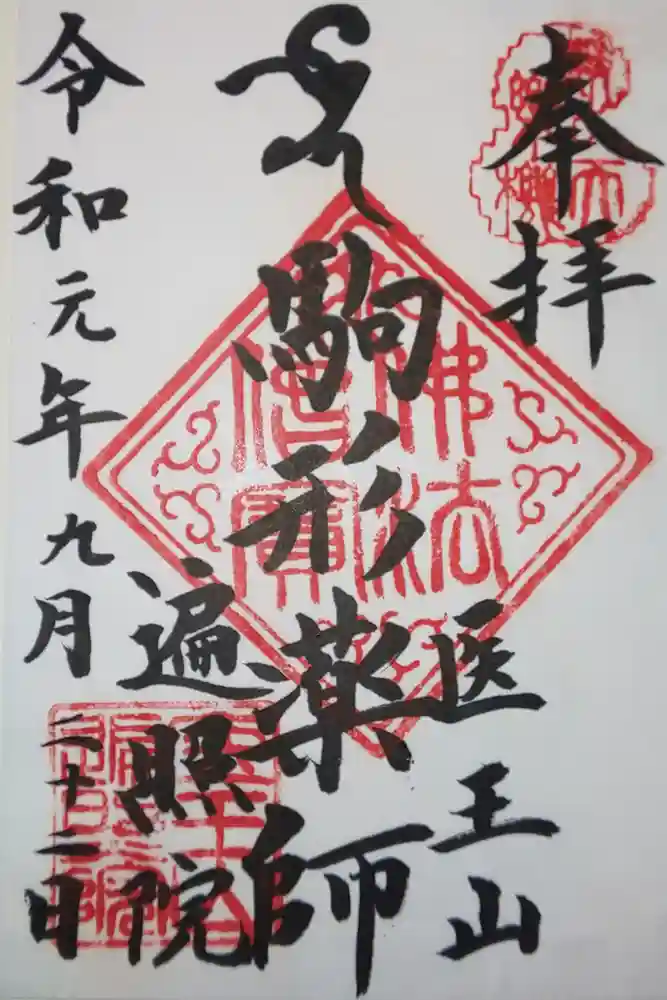 奉拝
医王山
駒形薬師
遍照院
令和元年九月二十二日
佛法
僧寳